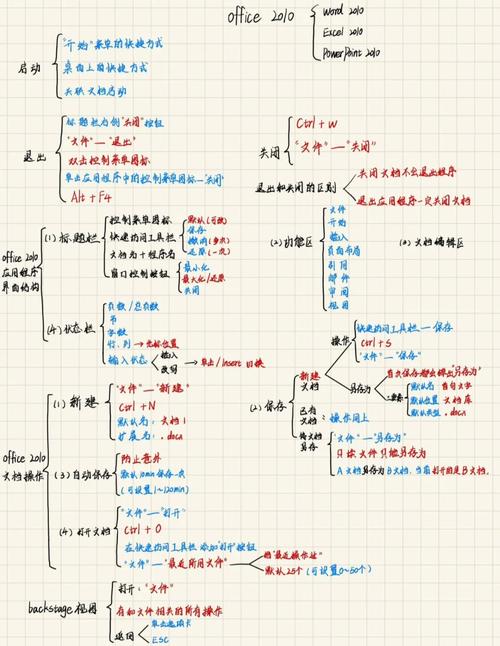 office 2010
Word 2010
Excel 2010
PowerPoint 2010
启动
"开始"菜单的快捷方式
桌面上的快捷方式
关联文档启动
退出
标题栏右侧"关闭"按钮
"文件"—"退出"
双击控制菜单图标
单击应用程序中的控制菜单图标—"关闭"
Alt + F4
关闭
Ctrl + W
"文件"—"关闭"
退出和关闭的区别
关闭文档不会退出程序
退出应用程序一定关闭文档
office 2010
应用程序
界面结构
(1) 标题栏
控制菜单图标
快速访问工具栏
默认(可改)
保存
撤消(多次)
还原(一次)
文档名+程序名
窗口控制按钮
最小化
最大化/还原
关闭
(2) 功能区
文件
开始
插入
页面布局
引用
邮件
审阅
视图
(3) 文档编辑区
(4) 状态栏
页数/总页数
节
字数
行、列→光标位置
输入状态
插入
改写
单击/Insert 切换
office 2010
文档操作
(1) 新建
"文件"—"新建"
Ctrl + N
默认名:文档1
扩展名:.docx
(2) 保存
新建
文档
操作
快速访问工具栏—保存
Ctrl + S
"文件"—"保存"
另存为
首次保存都会弹出"另存为"
默认名 首句文字
默认位置 文档库
默认类型 .docx
已有
文档:操作同上
将文档
另存
"文件"—"另存为"
只读文件只能另存为
A文档另存为B文档,当前打开的是B文档。
(3) 自动保存
防止意外
默认10min保存一次
(可设置1~120min)
(4) 打开文档
"文件"—"打开"
Ctrl + O
在快速访问工具栏添加"打开"按钮
"文件"—"最近所用文件"
"最近操作过"
默认25个(可设置0~50个)
backstage视图
打开:"文件"
有和文件相关的所有操作
返回
单击选项卡
ESC